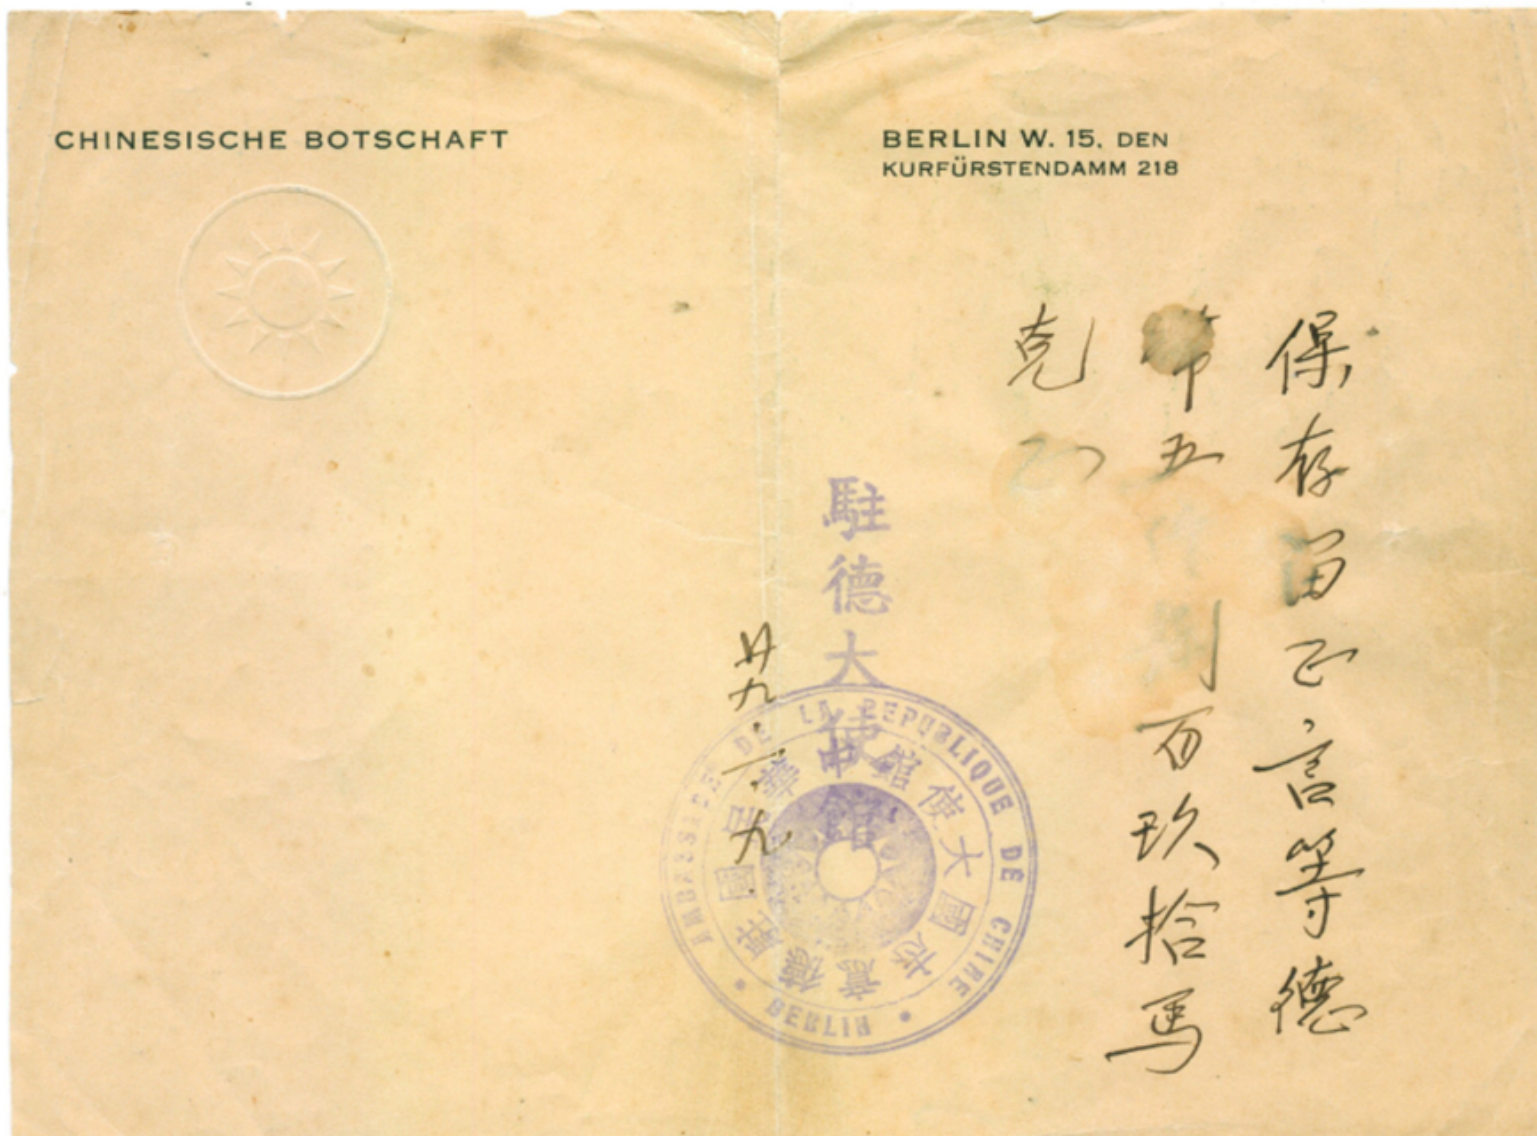 CHINESISCHE BOTSCHAFT
BERLIN W. 15, DEN
KURFÜRSTENDAMM 218
保存留正言等德
幣五 百玖拾馬
克
駐德大使館
廿九.一.九
AMBASSADE DE LA REPUBLIQUE DE CHINE
BERLIN
中華民國駐德意志國大使館